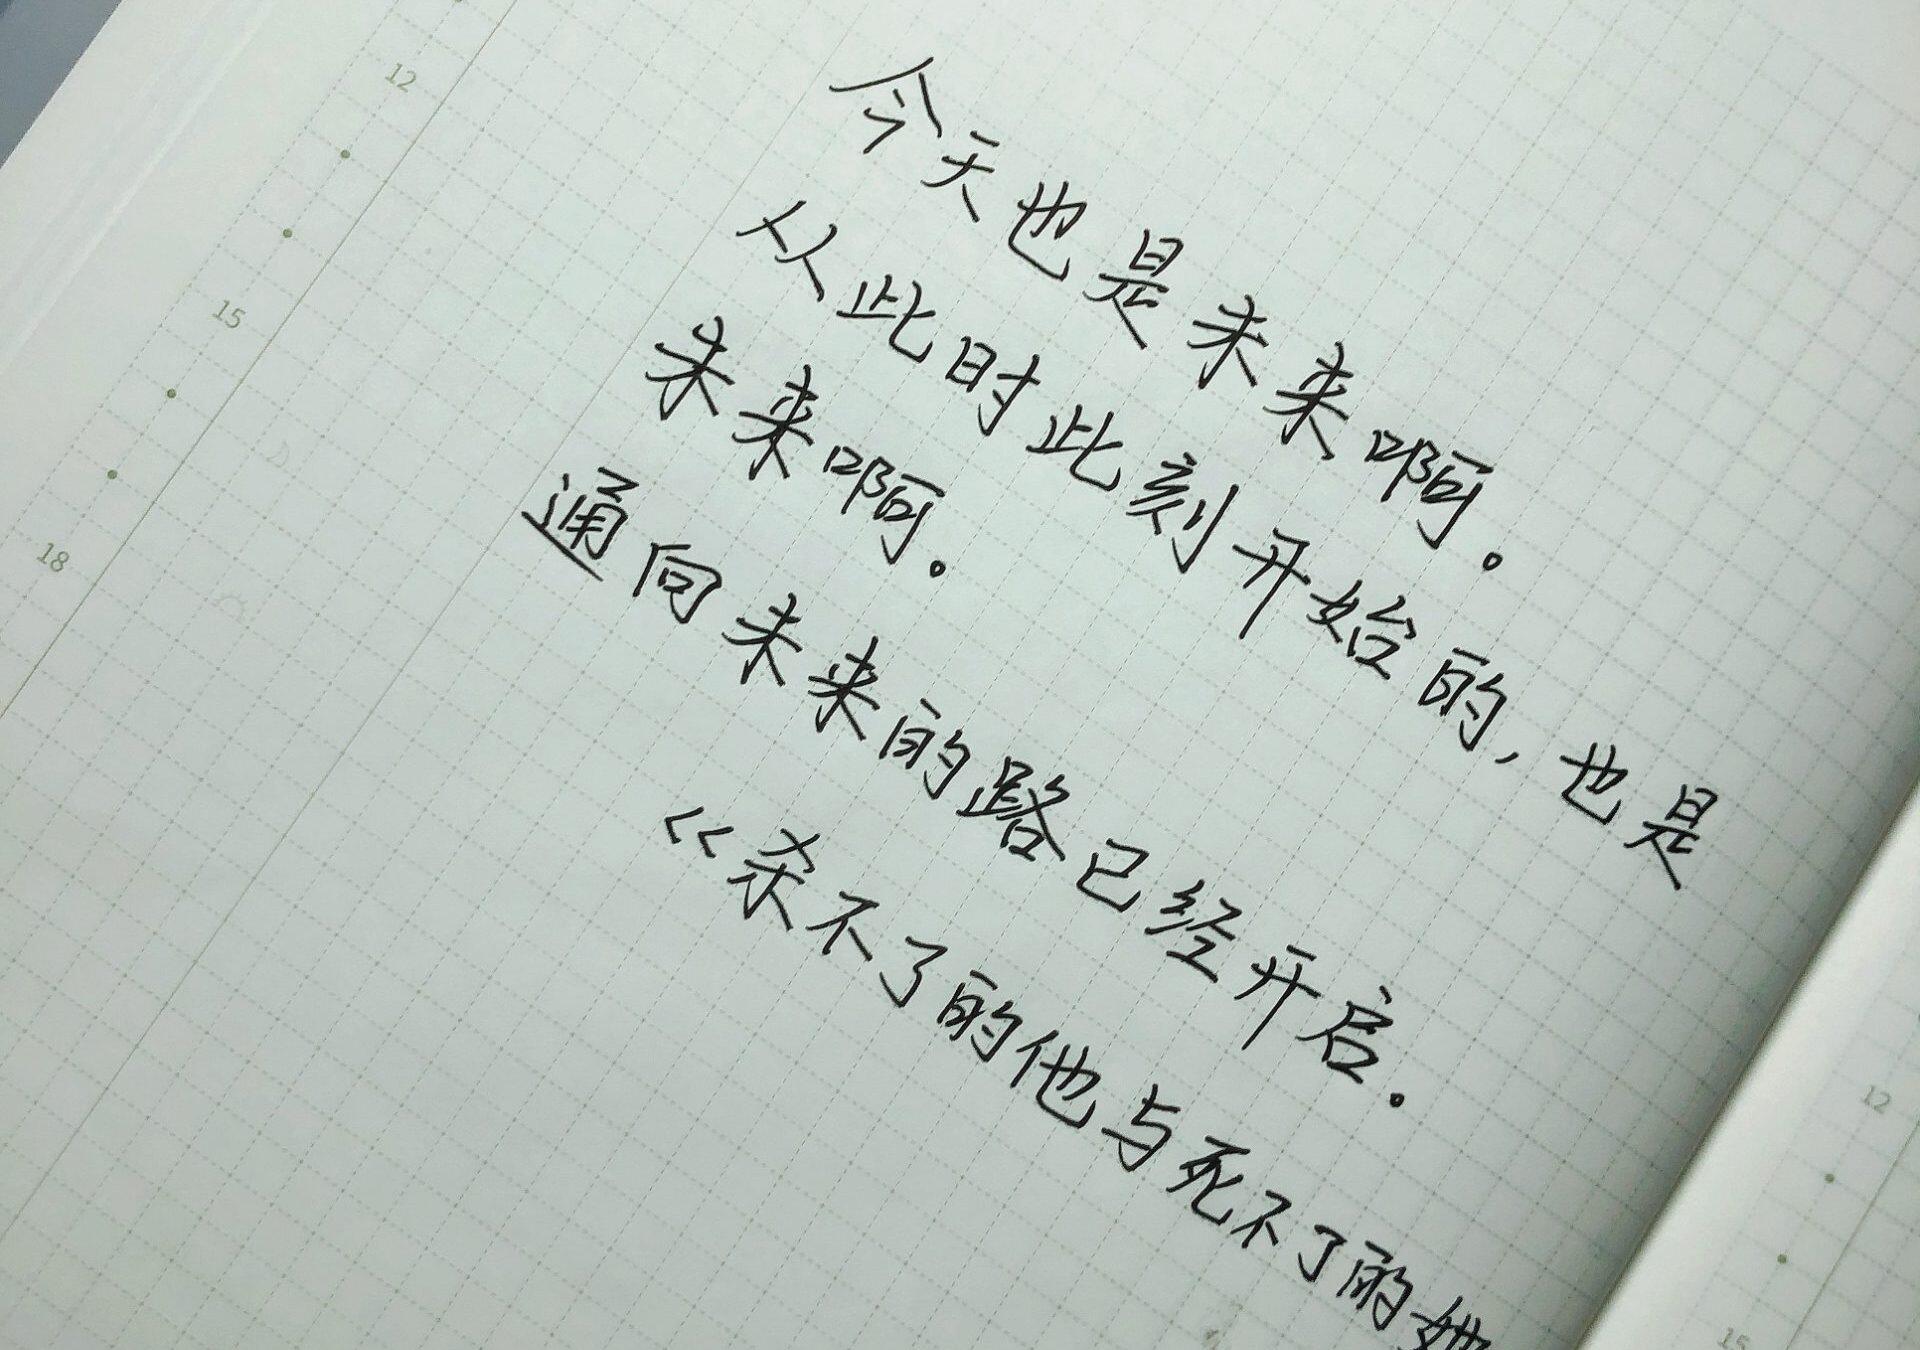 今天也是未来啊。
从此时此刻开始的，也是
未来啊。
通向未来的路已经开启.
《杀不了的他与死不了的她
12
15
18
12
15